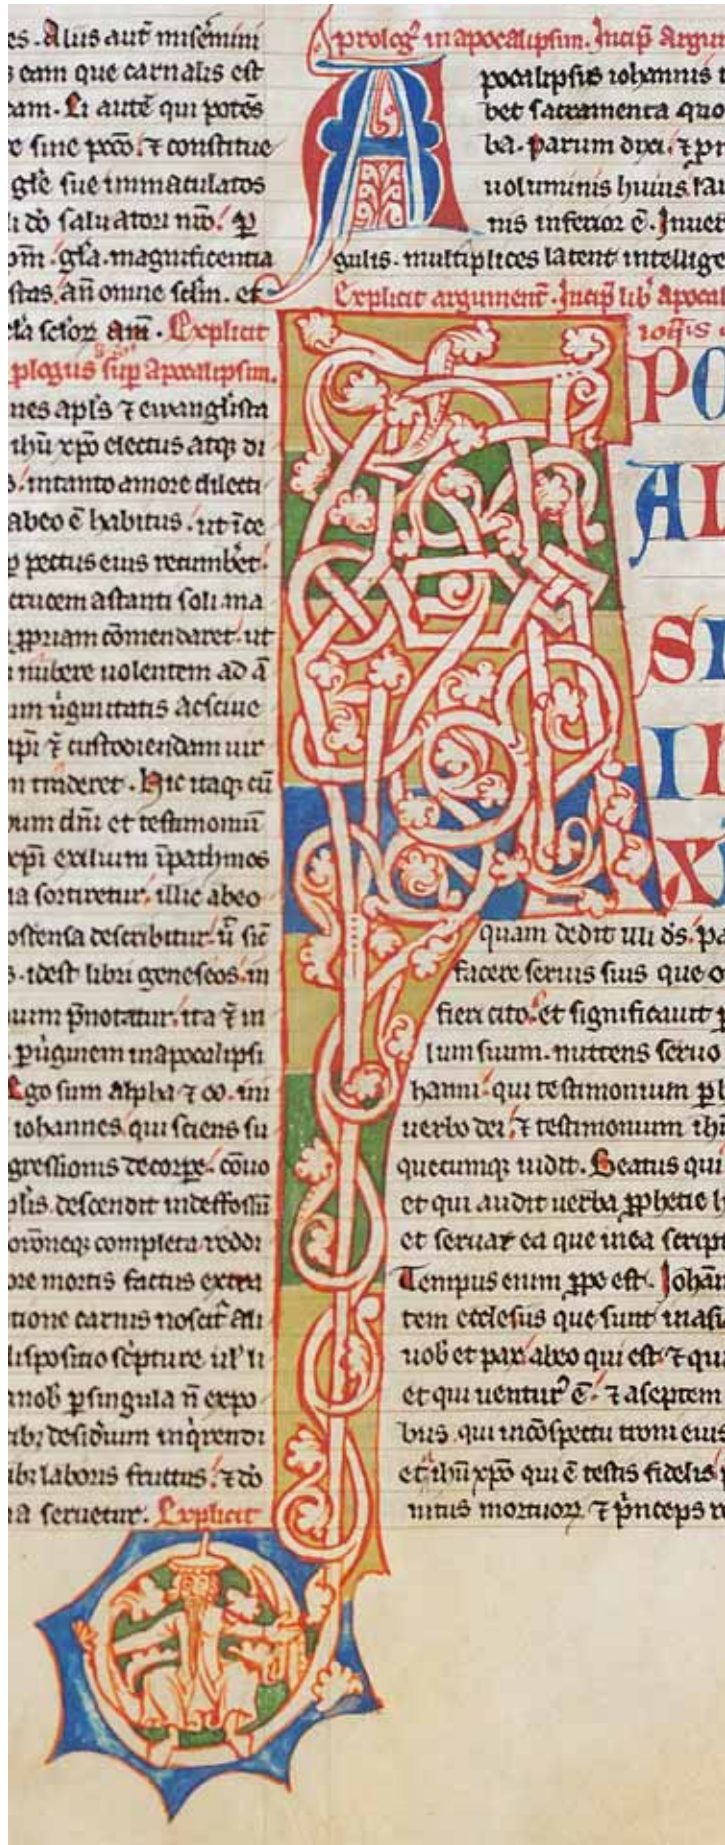 es. Alius aut miserimini
s eam que carnalis est
eam. Ei aute qui potes
e sine pcco. ⁊ constitue
gle sue immaculatos
i do saluatori nro. p
om. gla. magnificentia
stas. an omne sclm. et
cla sclor am. Explicit
plogus sup Apocalipsim.
nes apls ⁊ ewanglista
ihu xpo electus atq di
. intanto amore dilecti
abeo e habitus. ut ice
p pectus eius recumbet.
crucem astanti soli ma
ppriam comendaret. ut
nubere uolentem ad a
um uginitatis asciue
ipi ⁊ custodiendam uir
m traderet. Hic itaq cu
bum dni et testimoniu
cepi exilium ipathmos
la sortiretur. illic abeo
ostensa describitur. u sic
s. idest libri geneseos. in
uum pnotatur. ita ⁊ in
p uiginem inapocalipsi
Ego sum alpha ⁊ ω. ini
iohannes. qui sciens su
gressionis decorpe. couo
plis. descendit indefossu
orōneq completa reddi
ore mortis factus extra
tione carnis noscit ali
dispositio scpture ul li
anob p singula n expo
ib; desidium inqrendi
ib; laboris fructus. ⁊ do
na seruetur. Explicit
prolog in apocalipsim. Incip Argum
A pocalipsis iohannis t
bet sacramenta quo
ba. parum dixi. ⁊ pr
uoluminis huius lau
nis inferior e. Inuer
gulis. multiplices latent intellige
Explicit argument. Incip lib apocal
A PO
AL
SI
II
X
quam dedit illi ds. pa
facere seruis suis que o
fieri cito. et significauit
lum suum. mittens seruo
hanni. qui testimonium p
uerbo dei. ⁊ testimonium ih
quecumq uidit. Beatus qui
et qui audit uerba pphetie
et seruat ea que inea script
Tempus enim ppe est. Johan
tem ecclesiis que sunt inasi
uob et pax abeo qui est. ⁊ qui
et qui uentur e. ⁊ aseptem
bus. qui incospectu troni eius
et ihu xpo qui e testis fidelis
nitus mortuor ⁊ pnceps re